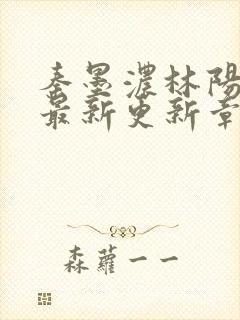 秦墨濃林陽
最新更新章
森蘿一一